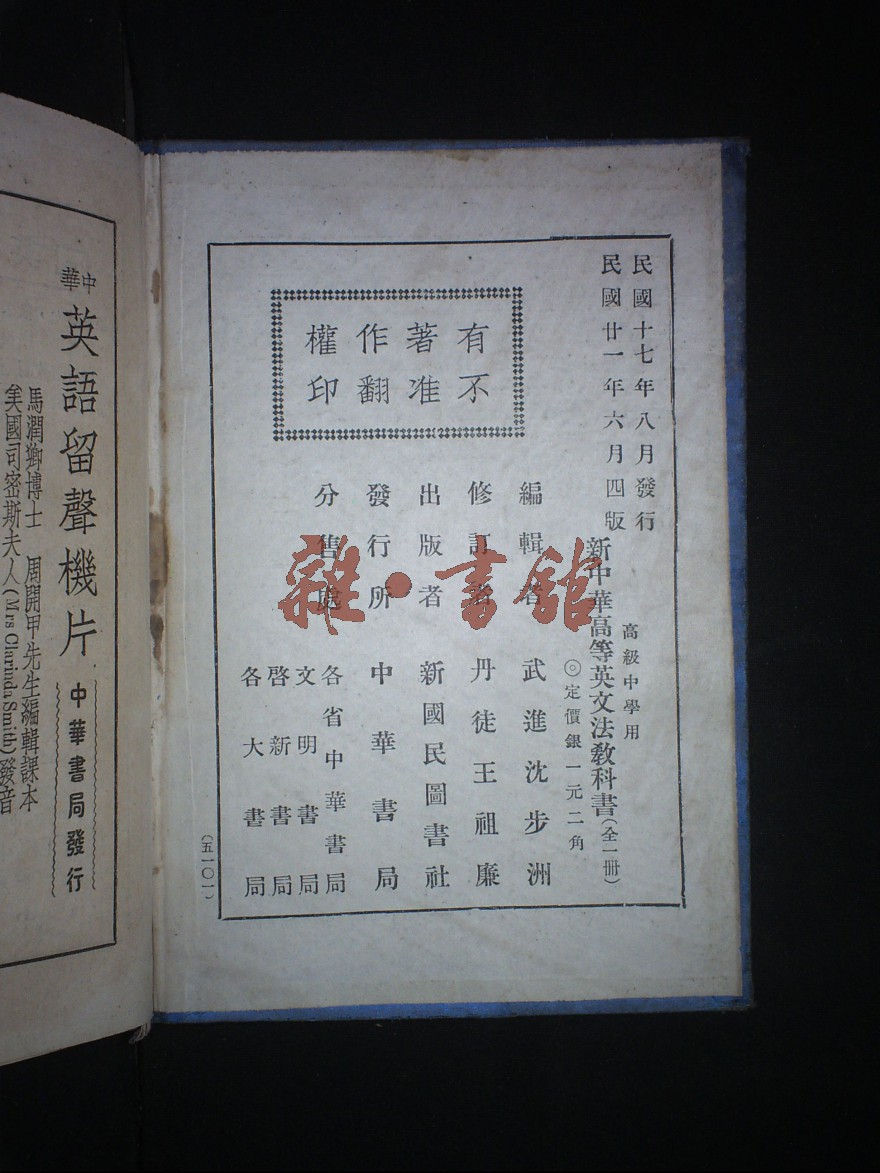 民國十七年八月發行
民國廿一年六月四版
高級中學用
新中華高等英文法教科書（全一冊）
◎定價銀一元二角
有著作權
不准翻印
編輯者 武進沈步洲
修訂者 丹徒王祖廉
出版者 新國民圖書社
發行所 中華書局
分售處 各省中華書局
文明書局
啓新書局
各大書局
（五一〇一）
雜·書館
中華
英語留聲機片
中華書局發行
馬潤卿博士 周開甲先生編輯課本
美國司密斯夫人（Mrs Clarinda Smith）發音